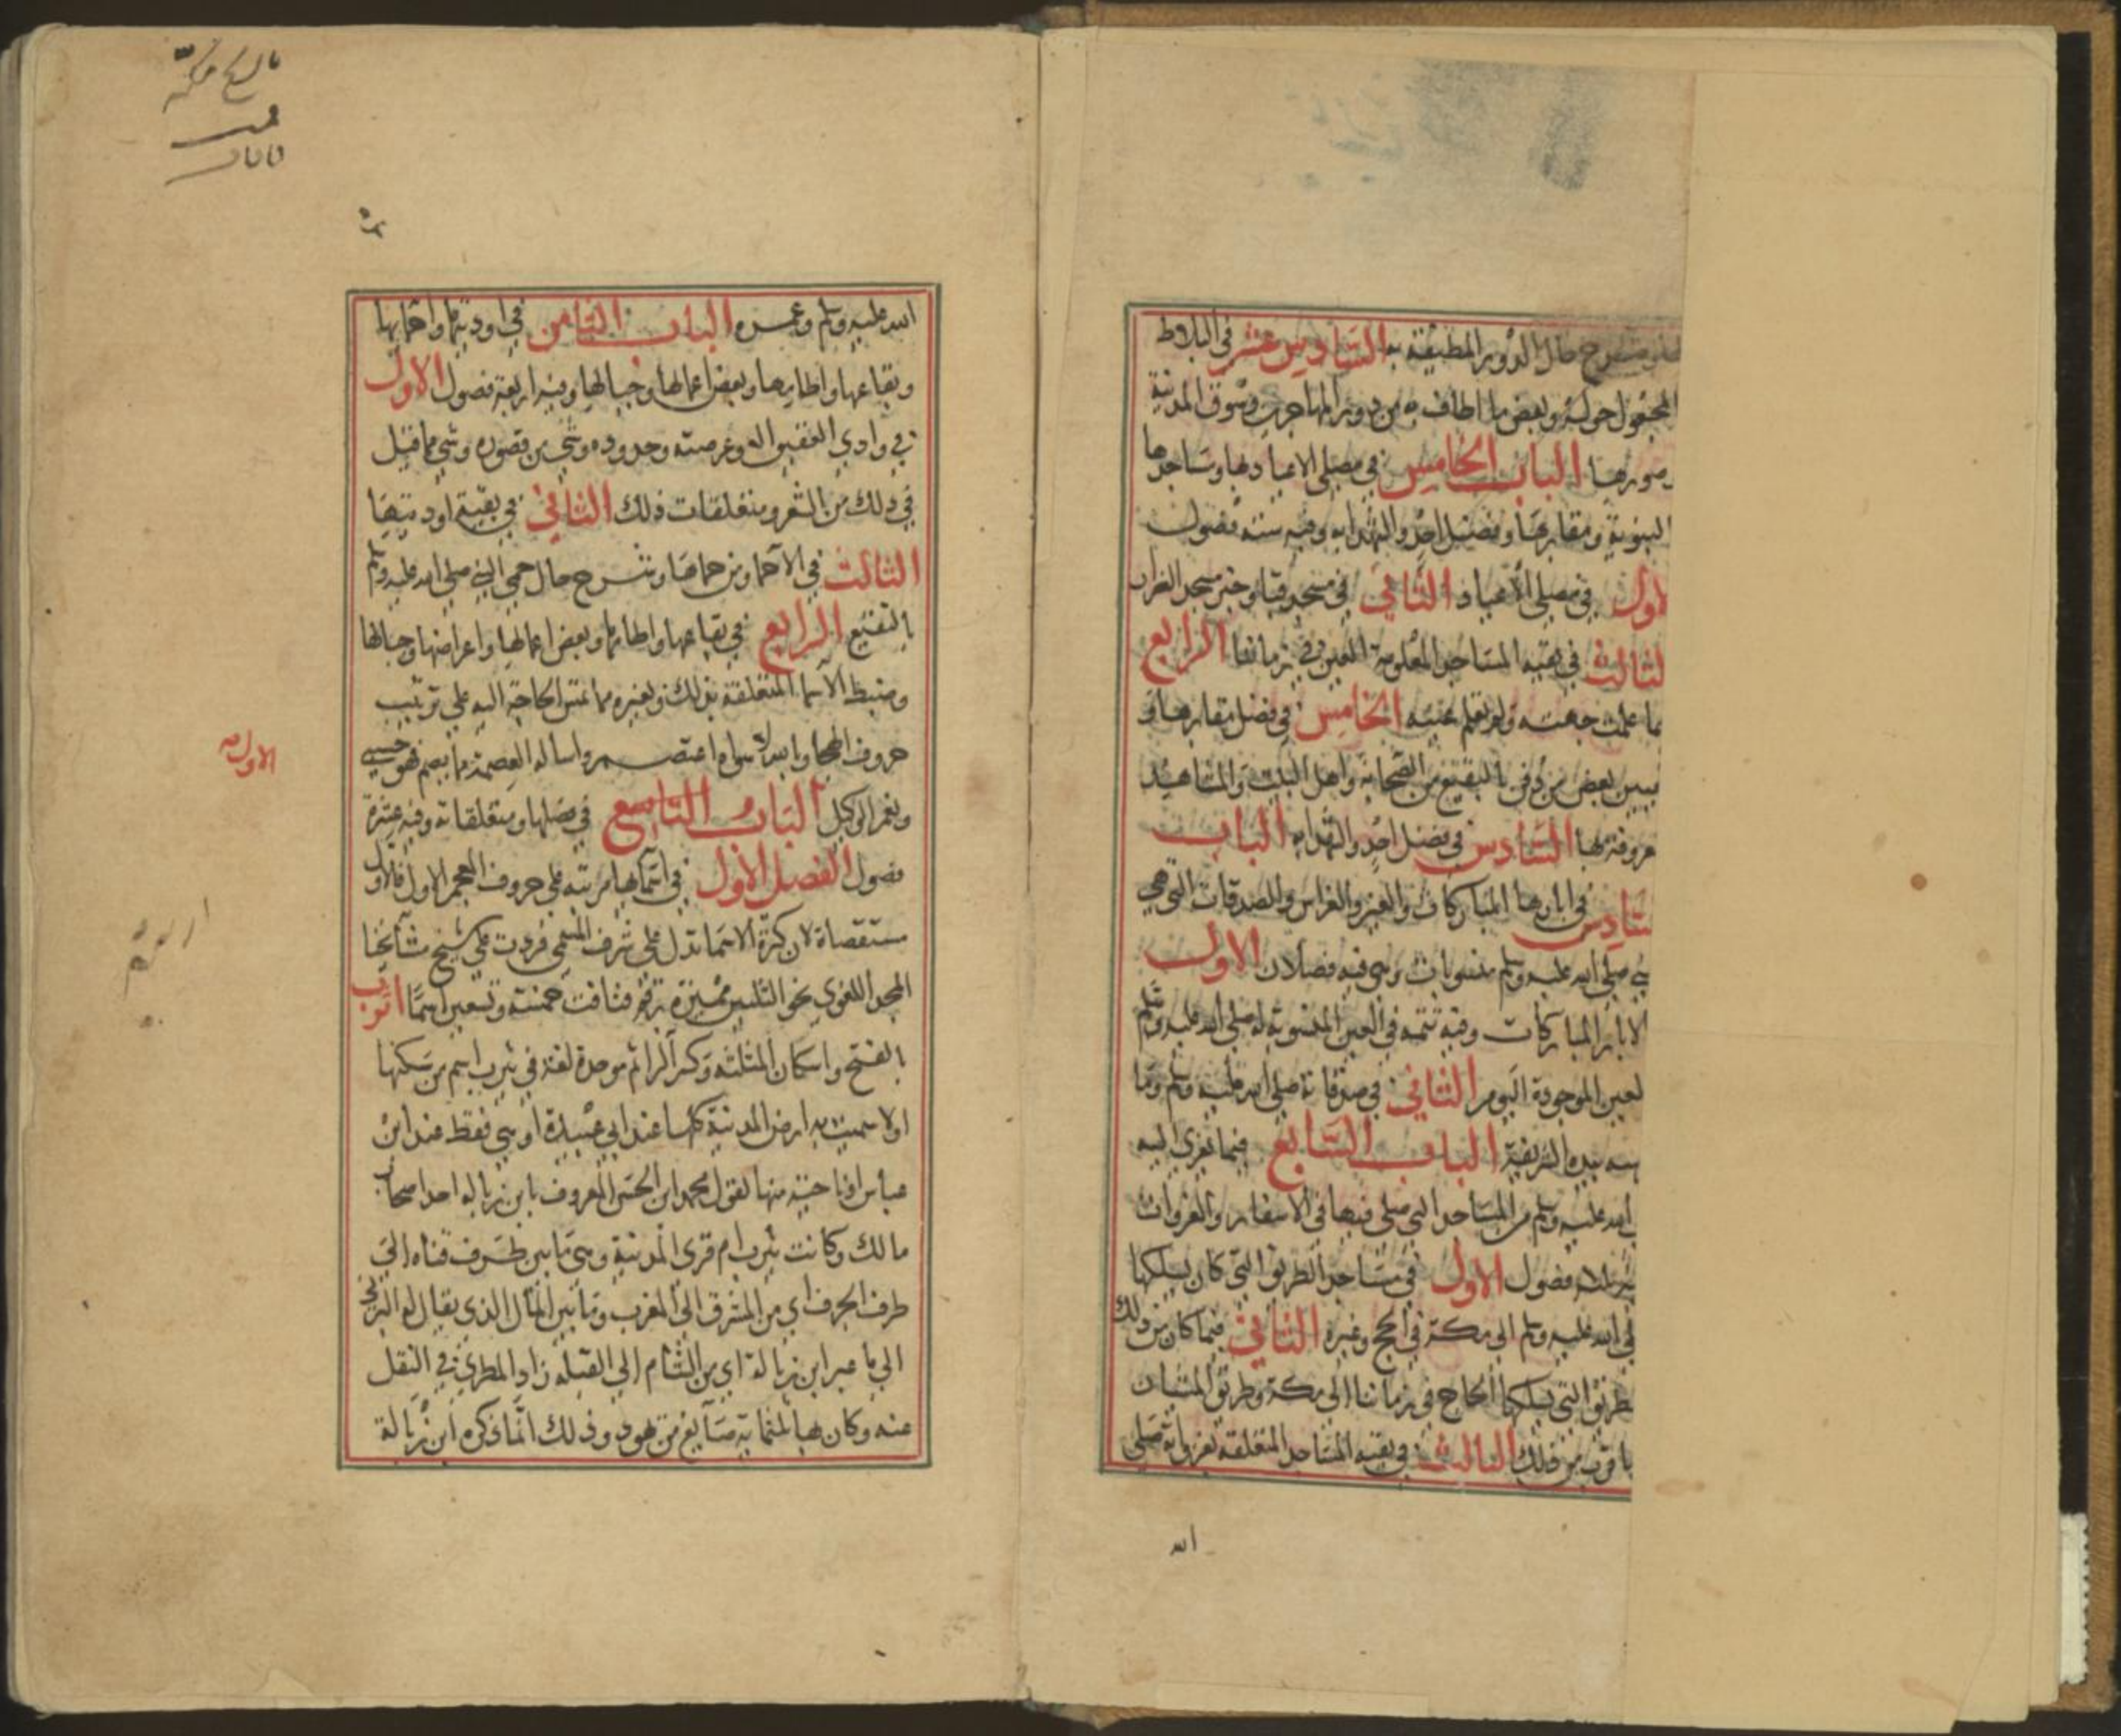 شرح حال الدور المطيفة به السادس عشر في البلاط
المجعول حوله وبعض ما اطاف به من دور المهاجرين وسوق المدينة
وسورها الباب الخامس في مصلى الاعيادها ومساجدها
النبوية ومقابرها وفضل احد والشهداء به وفيه ستة فصول
لاول في مصلى الاعياد الثاني في مسجد قبا وخبر مسجد الضرار
لثالث في بقية المساجد المعلومة العين في زماننا الرابع
ما علمت جهته ولم تعلم عينه الخامس في فضل مقابرها و
ببين بعض من دفن بالبقيع من الصحابة واهل البيت والمشاهد
عروفة بها السادس في فضل احد والشهداء به الباب
سادس في ابارها المباركات والعين والغراس والصدقات التي هي
بي صلى الله عليه وسلم منسوبات وهي فيه فصلان الاول
الابار المباركات وفيه تتمة في العين المنسوبة له صلى الله عليه وسلم
لعين الموجودة اليوم الثاني في صدقاته صلى الله عليه وسلم وما
سه بيده الشريفة الباب السابع فيما يعزى اليه
الله عليه وسلم من المساجد التي صلى فيها في الاسفار والغزوات
ثلاثة فصول الاول في مساجد الطريق التي كان يسلكها
لى الله عليه وسلم الى مكة في الحج وغيره الثاني فيما كان من ذلك
طريق التي يسلكها الحاج في زماننا الى مكة وطريق المشيان
ما قرب من ذلك الثالث في بقية المساجد المتعلقة بغزواته صلى
الله
الله عليه وسلم وعمره الباب الثامن في اوديتها واحمائها
وبقاعها واطامها وبعض اعمالها وجبالها وفيه اربعة فصول الاول
في وادي العقيق اله وعرصته وحدوده وشي من قصوره وشي مما قيل
في ذلك من الشعر ومتعلقات ذلك الثاني في بقية اوديتها
الثالث في الاحما ومن حماها وشرح حال حمى النبي صلى الله عليه وسلم
بالنقيع الرابع في بقاعها واطامها وبعض اعمالها واعراضها وجبالها
وضبط الاسما المتعلقة بذلك وبغيره مما تمس الحاجة اليه على ترتيب
حروف الهجا وبالله لا سواه اعتصم واساله العصمة مما يصم فهو حسبي
ونعم الوكيل الباب التاسع في فضلها ومتعلقاته وفيه عشرة
فصول الفصل الاول في اسمائها مرتبة على حروف المعجم الاول فالاول
مستقصاة لان كثرة الاسما تدل على شرف المسمى فزدت على شيخ مشايخنا
المجد اللغوي نحو الثلثين مميزة برقم فنافت خمسة وتسعين اسما اثرب
بالفتح واسكان المثلثة وكسر الرا ثم موحدة لغة في يثرب اسم من سكنها
اولا سميت به ارض المدينة كلها عند ابي عبيدة او هي فقط عند ابن
عباس او ناحية منها لقول محمد ابن الحسن المعروف بابن زبالة احد اصحاب
مالك وكانت يثرب ام قرى المدينة وهي ما بين طرف قناة الى
طرف الجرف اي من المشرق الى المغرب وما بين المال الذي يقال له البرني
الى ما عبر ابن زبالة اي من الشام الى القبلة زاد المطري في النقل
عنه وكان بها ثلثماية صايغ من يهود وذلك انما ذكره ابن زبالة
الاول